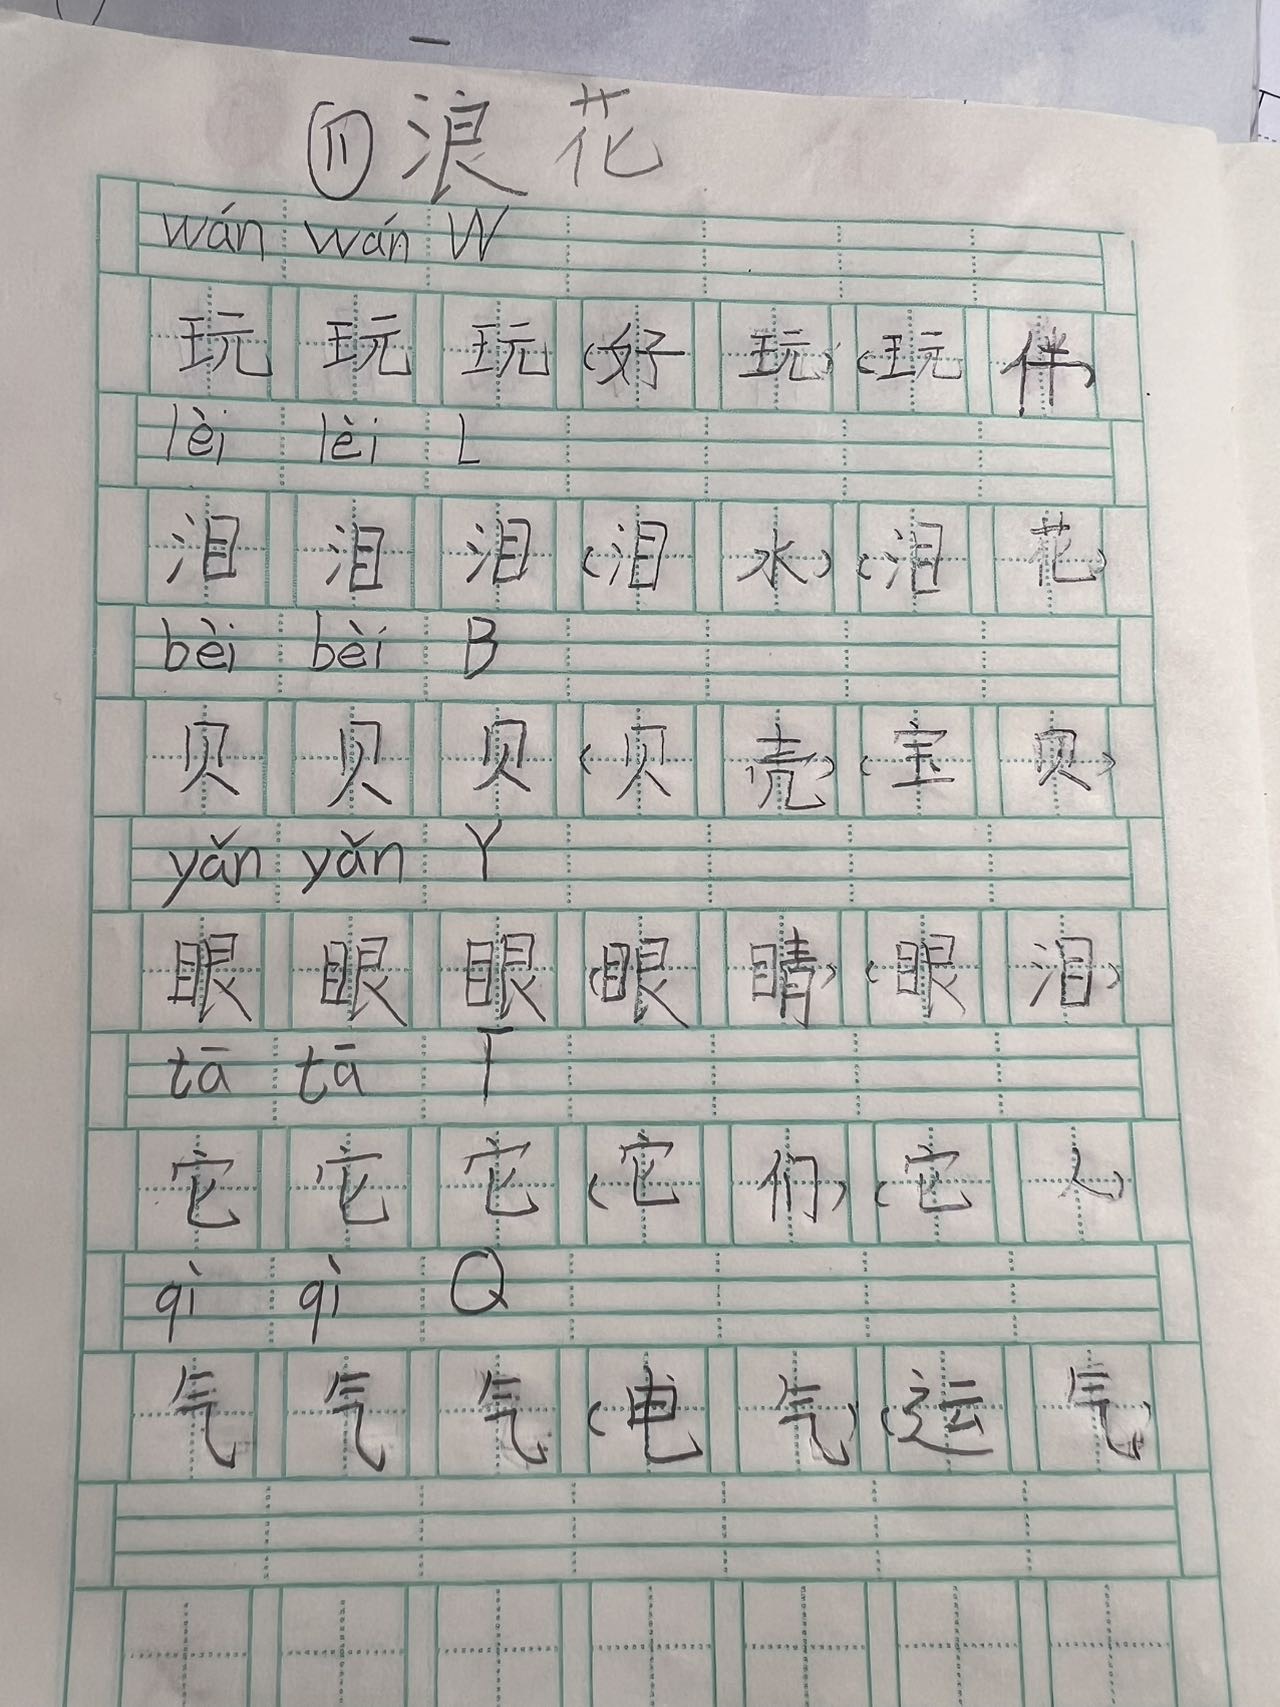 ⑪浪花
wán wán W
玩 玩 玩(好玩)(玩伴)
lèi lèi L
泪 泪 泪(泪水)(泪花)
bèi bèi B
贝 贝 贝(贝壳)(宝贝)
yǎn yǎn Y
眼 眼 眼(眼睛)(眼泪)
tā tā T
它 它 它(它们)(它人)
qì qì Q
气 气 气(电气)(运气)